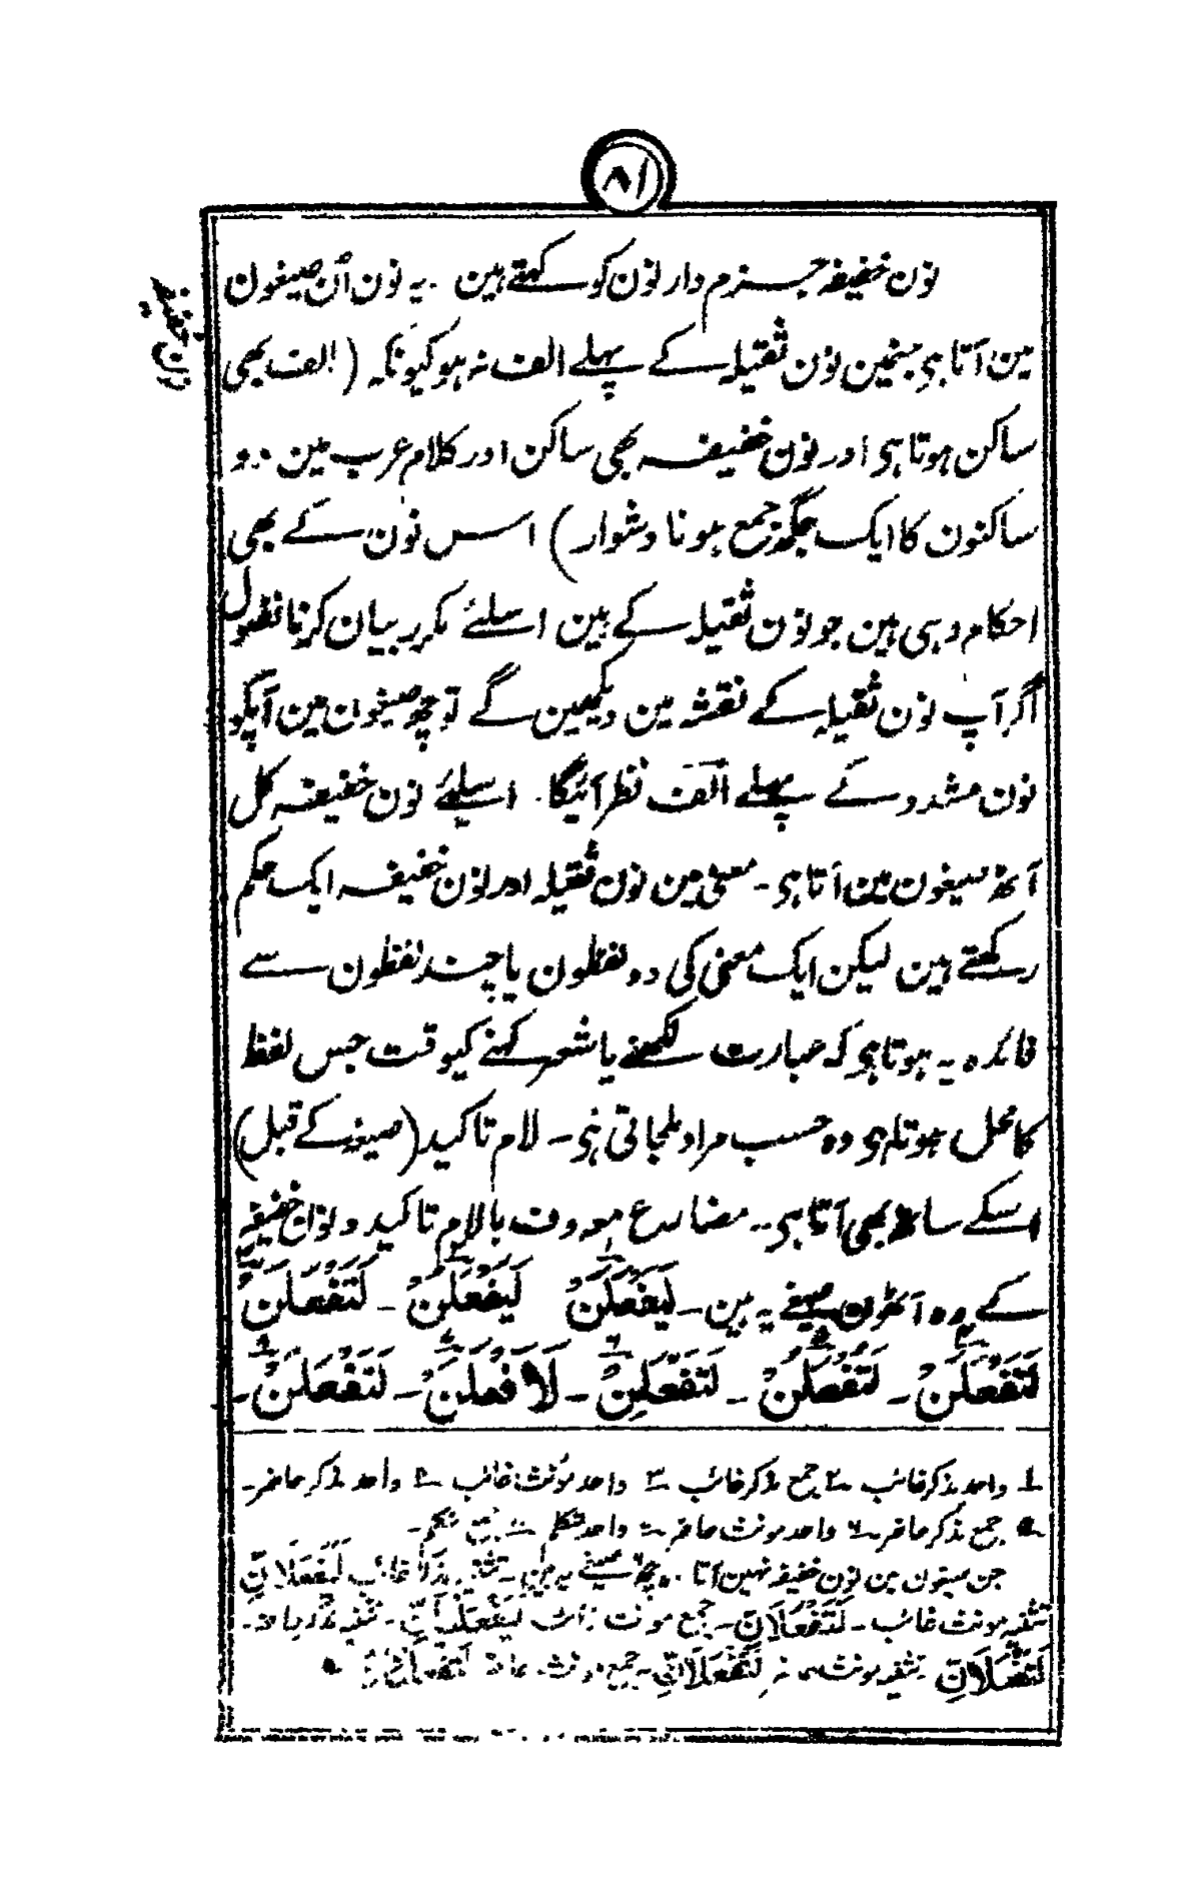 ۸۱
نون خفیفہ
نون خفیفہ جزم دار نون کو کہتے ہین ۔ یہ نون اُن صیغون
مین آتا ہی جنمین نون ثقیلہ کے پہلے الف نہ ہو کیونکہ (الف بھی
ساکن ہوتا ہی اور نون خفیفہ بھی ساکن اور کلام عرب مین دو
ساکنون کا ایک جگہ جمع ہونا دشوار) اس نون کے بھی
احکام وہی ہین جو نون ثقیلہ کے ہین اسلئے مکرر بیان کرنا فضول
اگر آپ نون ثقیلہ کے نقشہ مین دیکھین گے تو چھ صیغون مین آپکو
نون مشدد کے پہلے الف نظر آئیگا ۔ اسیلئے نون خفیفہ کل
آٹھ صیغون مین آتا ہی ۔ معنی مین نون ثقیلہ اور نون خفیفہ ایک حکم
رکھتے ہین لیکن ایک معنی کی دو لفظون یا چند لفظون سے
فائدہ یہ ہوتا ہی کہ عبارت لکھنے یا شعر کہنے کیوقت جس لفظ
کا محل ہوتا ہی وہ حسب مراد ملجاتی ہی ۔ لام تاکید (صیغہ کے قبل)
اسکے ساتھ بھی آتا ہی ۔ مضارع معروف بالام تاکید و نون خفیفہ
کے وہ آٹھون صیغے یہ ہین ۔ لَیَفْعَلَنْ لَیَفْعَلُنْ ۔ لَتَفْعَلَنْ
لَتَفْعَلَنْ ۔ لَتَفْعَلُنْ ۔ لَتَفْعَلِنْ ۔ لَاَفْعَلَنْ ۔ لَنَفْعَلَنْ ۔
۱ واحد مذکر غائب ۲ جمع مذکر غائب ۳ واحد مؤنث غائب ۴ واحد مذکر حاضر ۔
۵ جمع مذکر حاضر ۶ واحد مونث حاضر ۷ واحد متکلم ۸ جمع متکلم ۔
جن صیغون مین نون خفیفہ نہین آتا وہ چھ صیغے یہ ہین ۔ تثنیہ مذکر غائب لَیَفْعَلَانِّ
تثنیہ مونث غائب ۔ لَتَفْعَلَانِّ ۔ جمع مونث غائب لَیَفْعَلْنَانِّ ۔ تثنیہ مذکر حاضر ۔
لَتَفْعَلَانِّ تثنیہ مونث حاضر لَتَفْعَلَانِّ ۔ جمع مونث حاضر لَتَفْعَلْنَانِّ